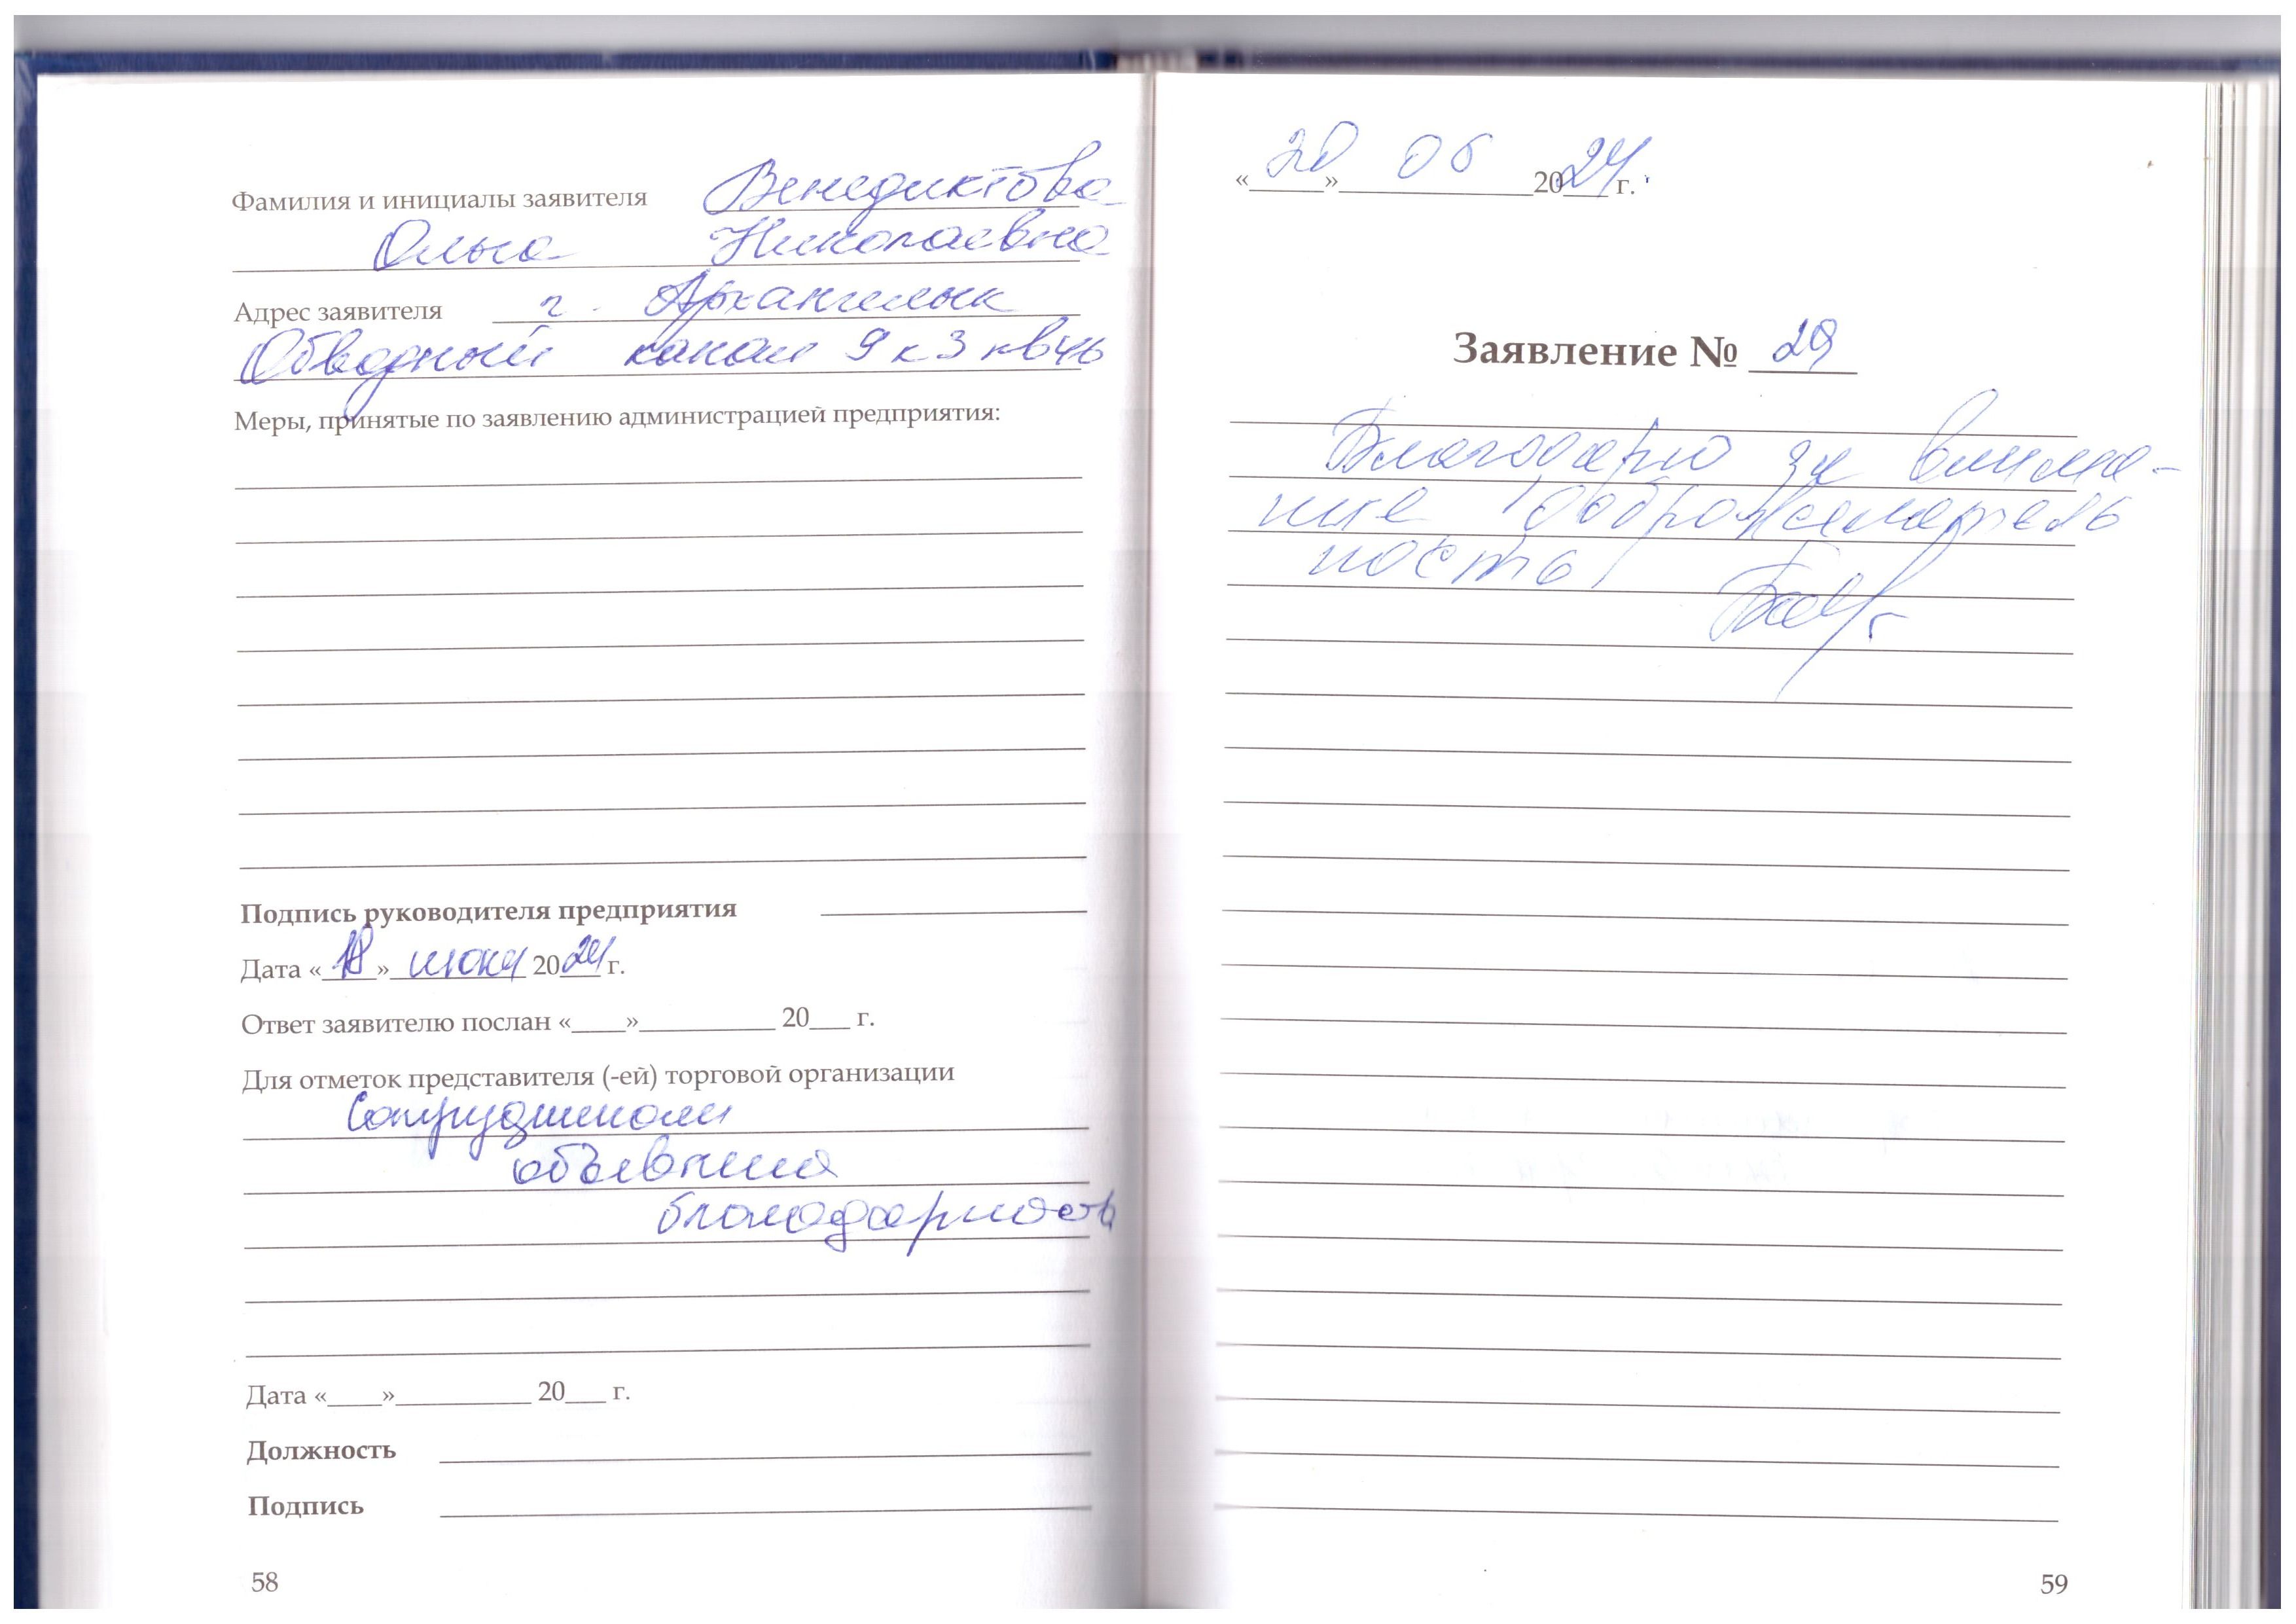 Фамилия и инициалы заявителя Венедиктова
Ольга Николаевна
Адрес заявителя г. Архангельск
Обводный канал 9 к 3 кв 46
Меры, принятые по заявлению администрацией предприятия:
Подпись руководителя предприятия
Дата «18» июня 2024 г.
Ответ заявителю послан «____»__________ 20___ г.
Для отметок представителя (-ей) торговой организации
Сотрудникам
объявлена
благодарность
Дата «____»__________ 20___ г.
Должность
Подпись
58
«20» 06 2024 г.
Заявление № 29
Благодарю за внима-
ние доброжелатель
ность!
59